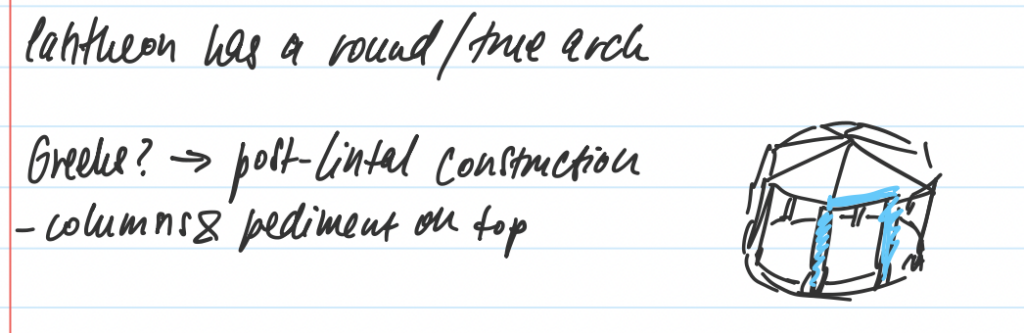 Pantheon has a round/true arch
Greeks? → post-lintal construction
- columns & pediment on top